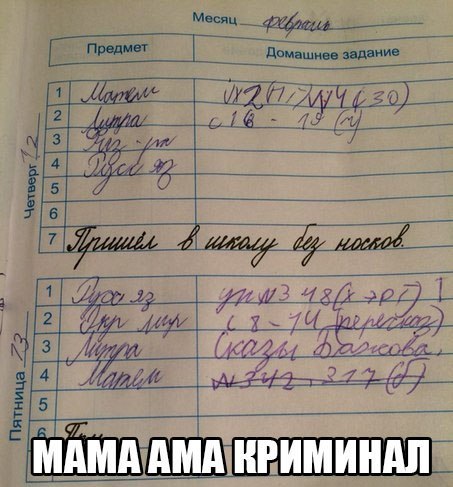 Месяц февраль
Предмет Домашнее задание
Четверг 12
1 Матем
2 Литра с 16 - 19 (ч)
3 Физ-ра
4 Русс яз
5
6
7 Пришёл в школу без носков.
Пятница 13
1 Русс яз упр №3 48
2 Окр мир с 8-14 (пересказ)
3 Литра Сказы Бажова.
4 Матем №342, 317 (б)
5
6
МАМА АМА КРИМИНАЛ